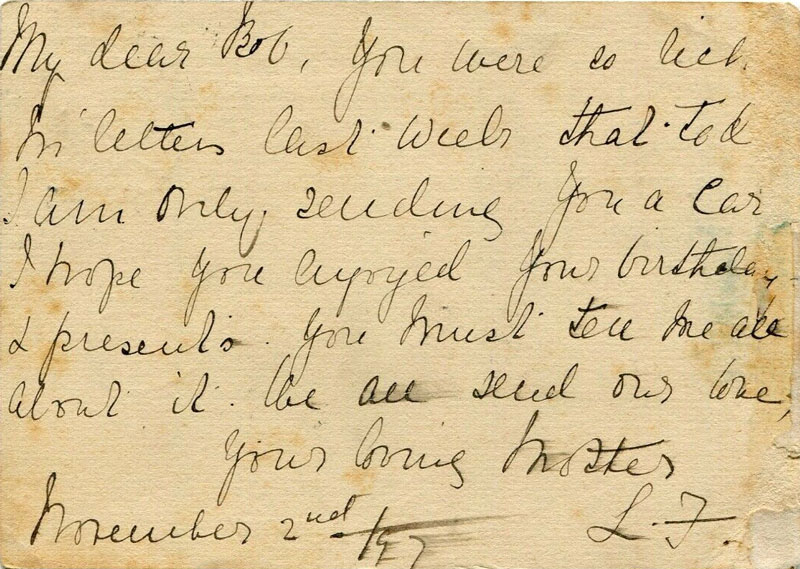 My dear Bob, You were so rich
in letters last week that tod
I am only sending you a car
I hope you enjoyed your birthday
& presents. You must tell me all
about it. We all send our love,
Your loving Mother
November 2nd /97 L. F.